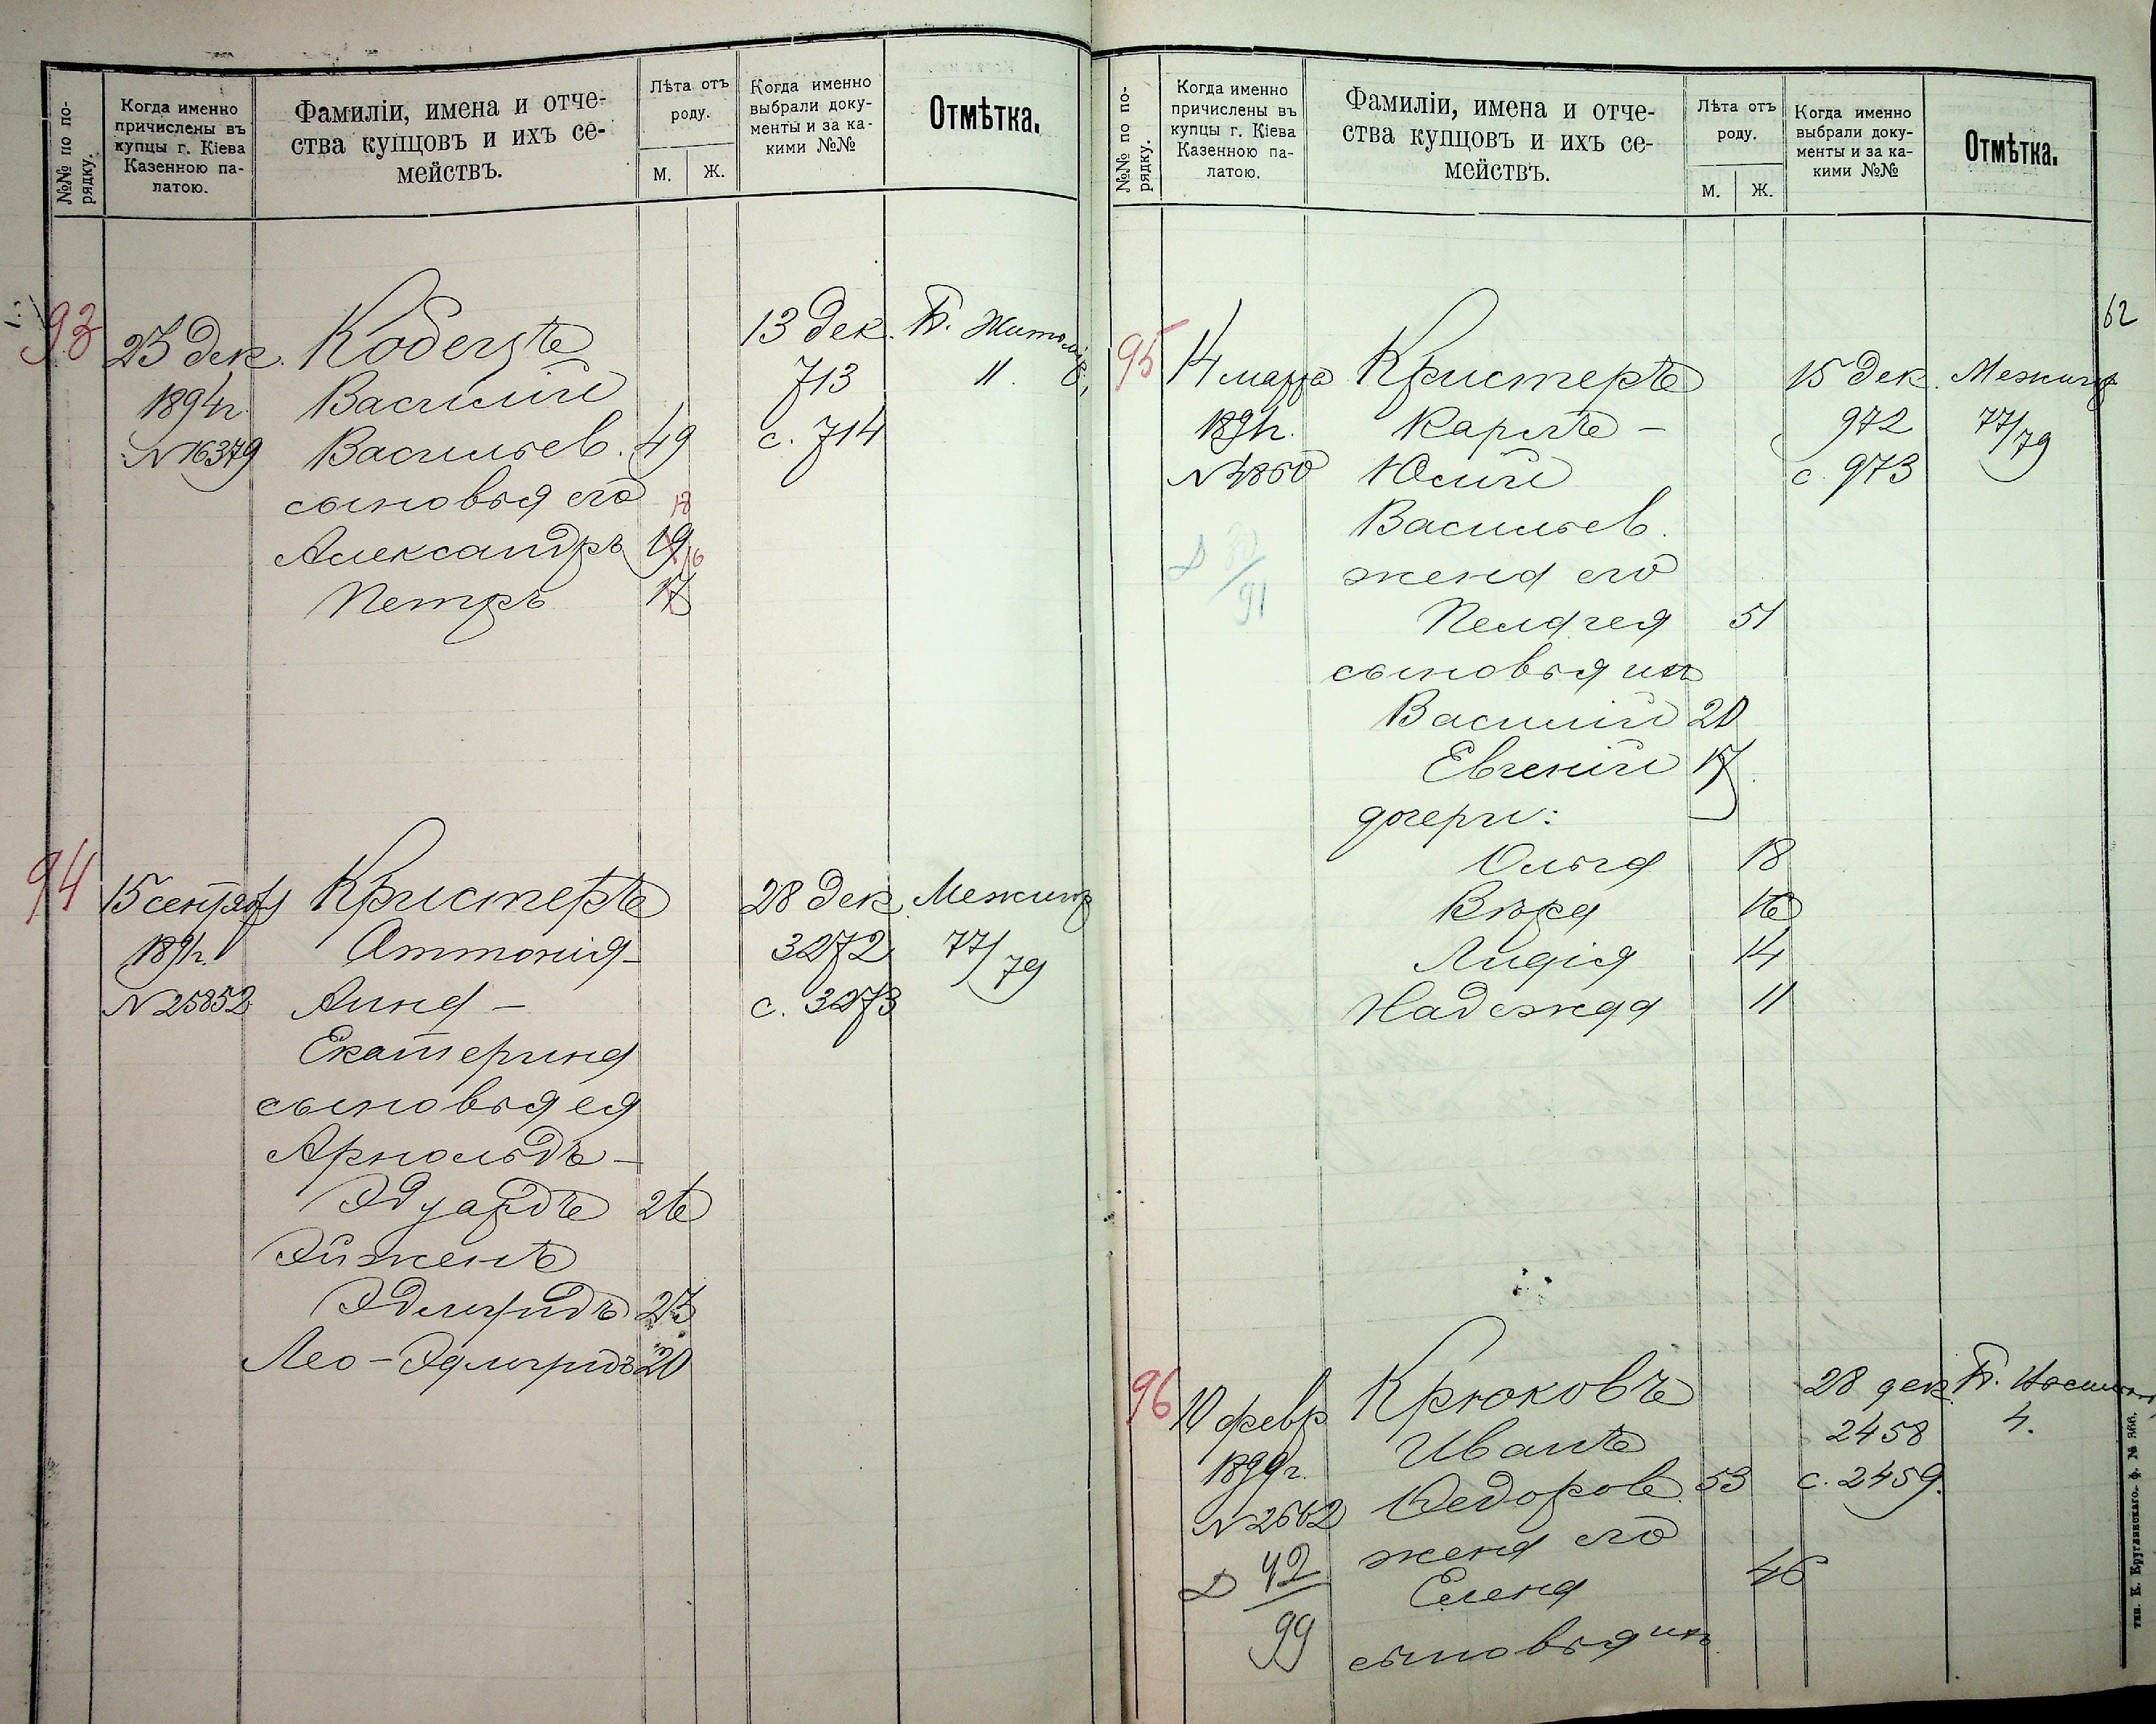 №№ по по-
рядку.
Когда именно
причислены въ
купцы г. Кіева
Казенною па-
латою.
Фамиліи, имена и отче-
ства купцовъ и ихъ се-
мействъ.
Лѣта отъ
роду.
М. Ж.
Когда именно
выбрали доку-
менты и за ка-
кими №№
Отмѣтка.
93
23 дек.
1894г.
№16379
Василій
Васильев. 49
сыновья его
18
Александръ 19
16
Петръ 17
13 дек.
713
с. 714
11.
94
1891г.
№25852
Кристеръ
Антонія-
Анна-
Екатерина
сыновья ея
Арнольдъ-
Эдуардъ 26
Эйженъ
23
Лео- 20
28 дек.
3272
с. 3273
77/79
№№ по по-
рядку.
Когда именно
причислены въ
купцы г. Кіева
Казенною па-
латою.
Фамиліи, имена и отче-
ства купцовъ и ихъ се-
мействъ.
Лѣта отъ
роду.
М. Ж.
Когда именно
выбрали доку-
менты и за ка-
кими №№
Отмѣтка.
62
95
14 марта
1891г.
№4860
Кристеръ
Карлъ-
Юлій
Васильев.
жена его
Пелагея 51
сыновья ихъ
Василій 20
Евгеній 17
дочери:
Ольга 18
Вѣра 16
Лидія 14
Надежда 11
15 дек.
972
с. 973
77/79
96
10 февр
1899г.
№2562
42/99
Крюковъ
Иванъ
Ѳедоров. 53
жена его
Елена 46
сыновья ихъ
28 дек.
2458
с. 2459.
4.
тип. К. Круглянскаго. ф. № 366.